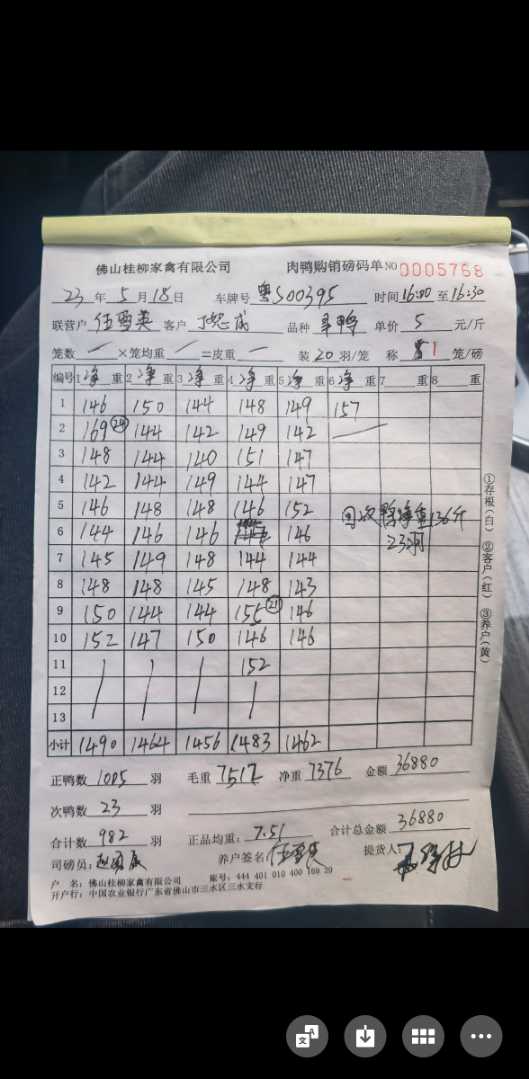 佛山桂柳家禽有限公司 肉鸭购销磅码单 NO 0005768
23 年 5 月 18 日 车牌号 粤S00395 时间 16:00 至 16:30
联营户 伍雪英 客户 品种 单价 5 元/斤
笼数 — ×笼均重 — =皮重 — 装 20 羽/笼 称 1 笼/磅
编号 1 净 重 2 净 重 3 净 重 4 净 重 5 净 重 6 净 重 7 重 8 重
1 146 150 144 148 149 157
2 169 (24) 144 142 149 142 —
3 148 144 140 151 147
4 142 144 149 144 147
5 146 148 148 146 152
6 144 146 146 146
7 145 149 148 144 144
8 148 148 145 148 143
9 150 144 144 155 (21) 146
10 152 147 150 146 146
11 152
12
13
小计 1490 1464 1456 1483 1462
因次鸭净重136斤
23羽
正鸭数 1005 羽 毛重 7512 净重 7376 金额 36880
次鸭数 23 羽
合计数 982 羽 正品均重: 7.51 合计总金额 36880
司磅员: 养户签名: 伍雪英 提货人:
户 名: 佛山桂柳家禽有限公司 账号: 444 401 010 400 169 20
开户行: 中国农业银行广东省佛山市三水区三水支行
①存根(白) ②客户(红) ③养户(黄)